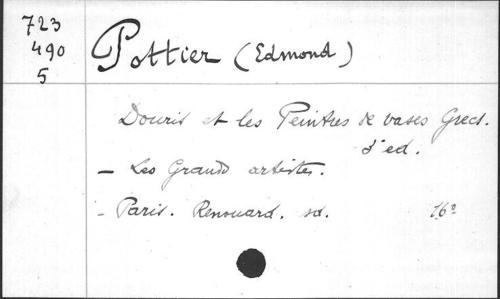 723
490
5
Pottier (Edmond)
Douris et les Peintres de vases Grecs.
3ᵉ ed.
– Les Grands artistes.
– Paris. Renouard. sd.
16°